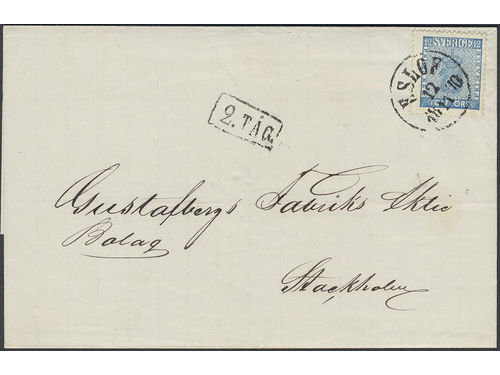 12 SVERIGE 12
TOLF ÖRE
ESLÖF
12 10
1871
2. TÅG.
Gustafbergs Fabriks Aktie
Bolag
Stockholm